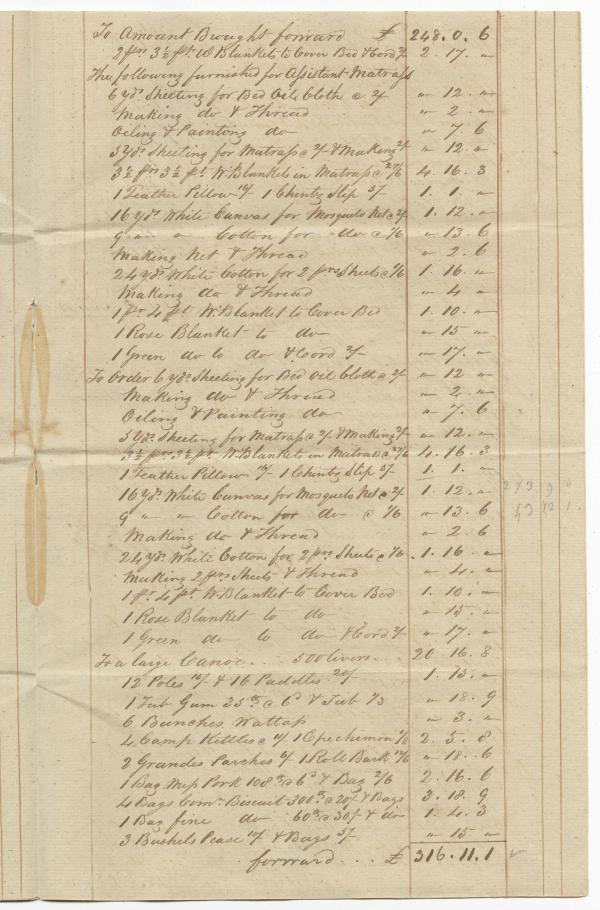 To Amount Brought forward £ 248. 0. 6
2 prs 3½ pt W Blankets to Cover Bed & Cord 2/ 2. 17. "
The following furnished for Assistant Matrass
6 yds Sheeting for Bed Oil Cloth @ 2/ " 12. "
Making do & Thread " 2. "
Oiling & Painting do " 7. 6
5 yds Sheeting for Matrass @ 2/ & Making 2/ " 12. "
3½ prs 3½ pt W. Blankets in Matrass @ 27/6 4. 16. 3
1 Feather Pillow 16/ 1 Chintz Slip 5/ 1. 1. "
16 yds White Canvas for Mosqueto Net @ 2/ 1. 12. "
9 " " Cotton for do @ 1/6 " 13. 6
Making Net & Thread " 2. 6
24 yds White Cotton for 2 prs Sheets @ 1/6 1. 16. "
Making do & Thread " 4. "
1 pr 4 pt W. Blanket to Cover Bed 1. 10. "
1 Rose Blanket to do " 15. "
1 Green do to do & Cord 2/ " 17. "
To Order 6 yds Sheeting for Bed Oil Cloth @ 2/ " 12 "
Making do & Thread " 2. "
Oiling & Painting do " 7. 6
5 yds Sheeting for Matrass @ 2/ & Making 2/ " 12. "
3½ prs 3½ pt W. Blankets in Matrass @ 27/6 4. 16. 3
1 Feather Pillow 16/ 1 Chintz Slip 5/ 1. 1. "
16 yds White Canvas for Mosqueto Net @ 2/ 1. 12. "
9 " " Cotton for do @ 1/6 " 13. 6
Making do & Thread " 2. 6
24 yds White Cotton for 2 prs Sheets @ 1/6 1. 16. "
Making 2 prs Sheets & Thread " 4. "
1 pr 4 pt W. Blanket to Cover Bed 1. 10. "
1 Rose Blanket to do " 15. "
1 Green do to do & Cord 2/ " 17. "
To a large Canoe . . . 500 livers . 20. 16. 8
12 Poles & 16 Paddles 20/ 1. 15. "
1 Tub Gum 35 lb @ 6d & Tub 1/3 " 18. 9
6 Bunches Wattap " 3. "
4 Camp Kettles @ 1 Epechemon 2. 5. 8
2 Grandes Parches 6/ 1 Roll Bark " 18. 6
1 Bag Mess Pork 108 lb @ 6d & Bag 2/6 2. 16. 6
4 Bags Com. Biscuit 300 lb @ 20/ & Bags 3. 18. 9
1 Bag fine do 60 lb @ 30/ & do 1. 4. 3
3 Bushels Pease & Bags 5/ " 15 "
forward . . . £ 316. 11. 1